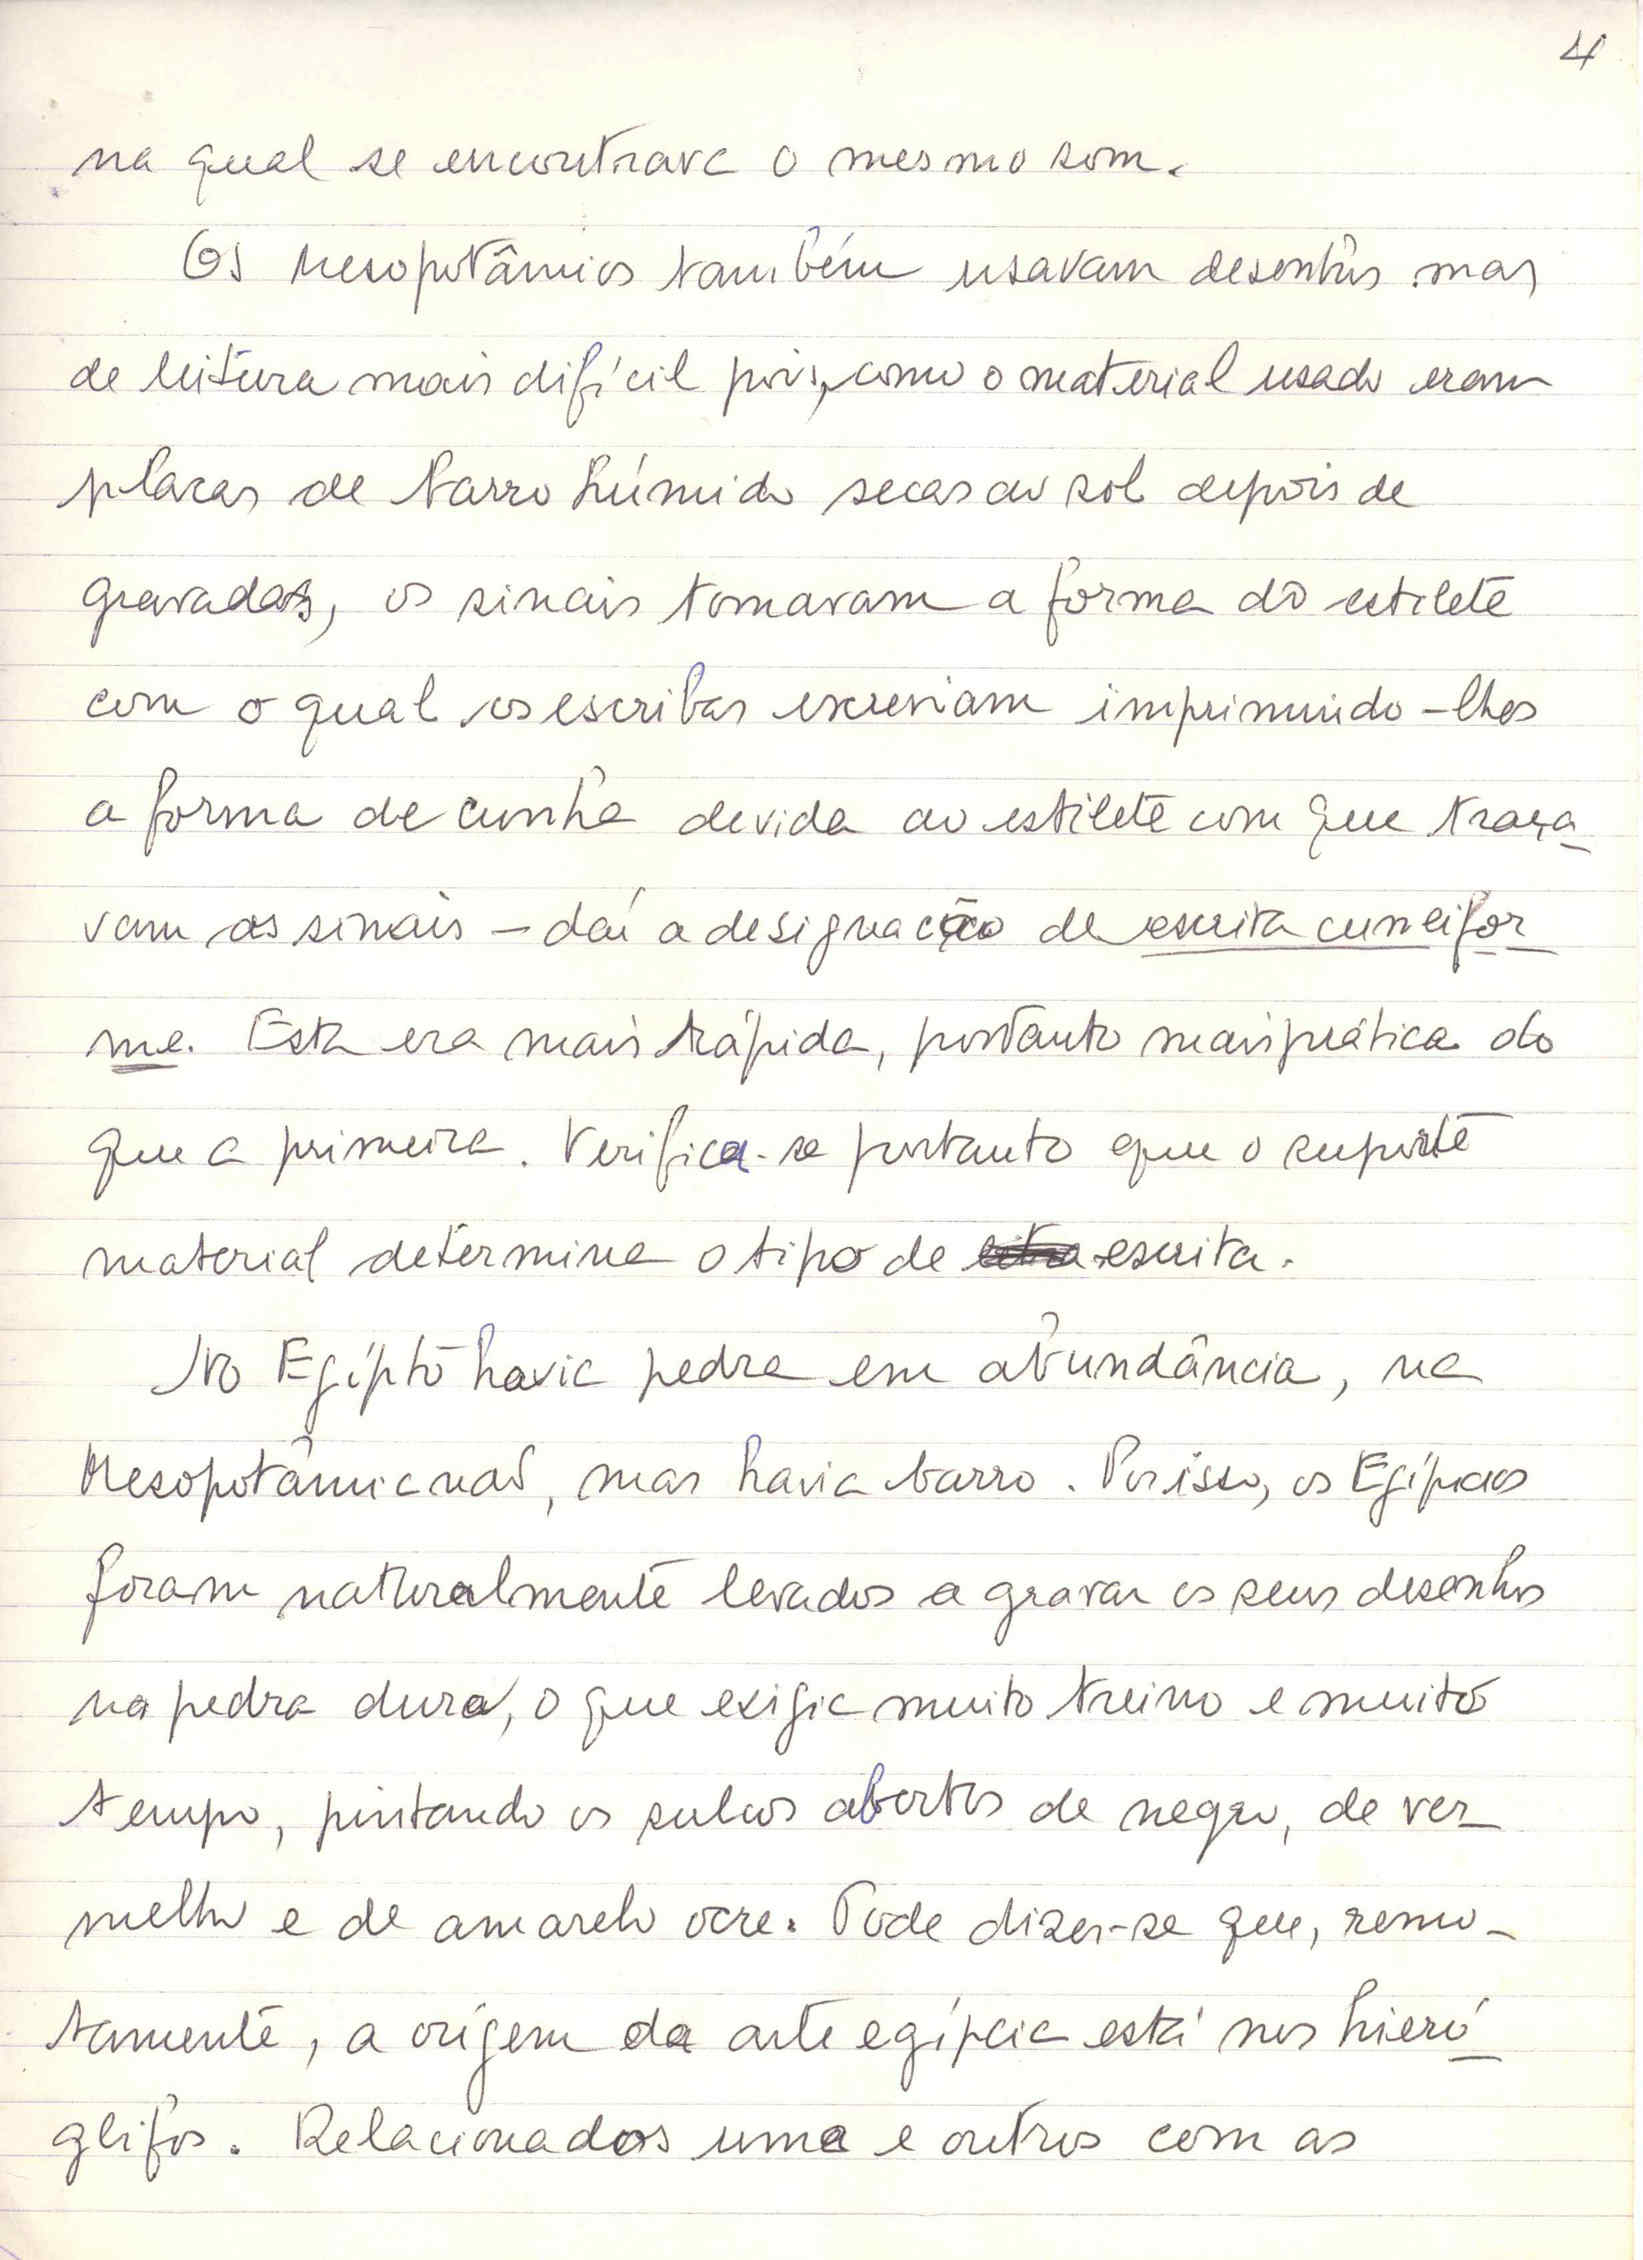 4
na qual se encontrava o mesmo som.
Os Mesopotâmios também usavam desenhos mas
de leitura mais difícil pois, como o material usado eram
placas de barro húmido secas ao sol depois de
gravadas, os sinais tomavam a forma do estilete
com o qual os escribas escreviam imprimindo-lhes
a forma de cunha devida ao estilete com que traça
vam os sinais – daí a designação de escrita cuneifor
me. Esta era mais rápida, portanto mais prática do
que a primeira. Verifica-se portanto que o suporte
material determina o tipo de escrita.
No Egípto havia pedra em abundância, na
Mesopotâmia não, mas havia barro. Por isso, os Egípcios
foram naturalmente levados a gravar os seus desenhos
na pedra dura, o que exigia muito treino e muito
tempo, pintando os sulcos abertos de negro, de ver_
melho e de amarelo ocre. Pode dizer-se que, remo-
tamente, a origem da arte egípcia está nos hieró
glifos. Relacionados uma e outros com as